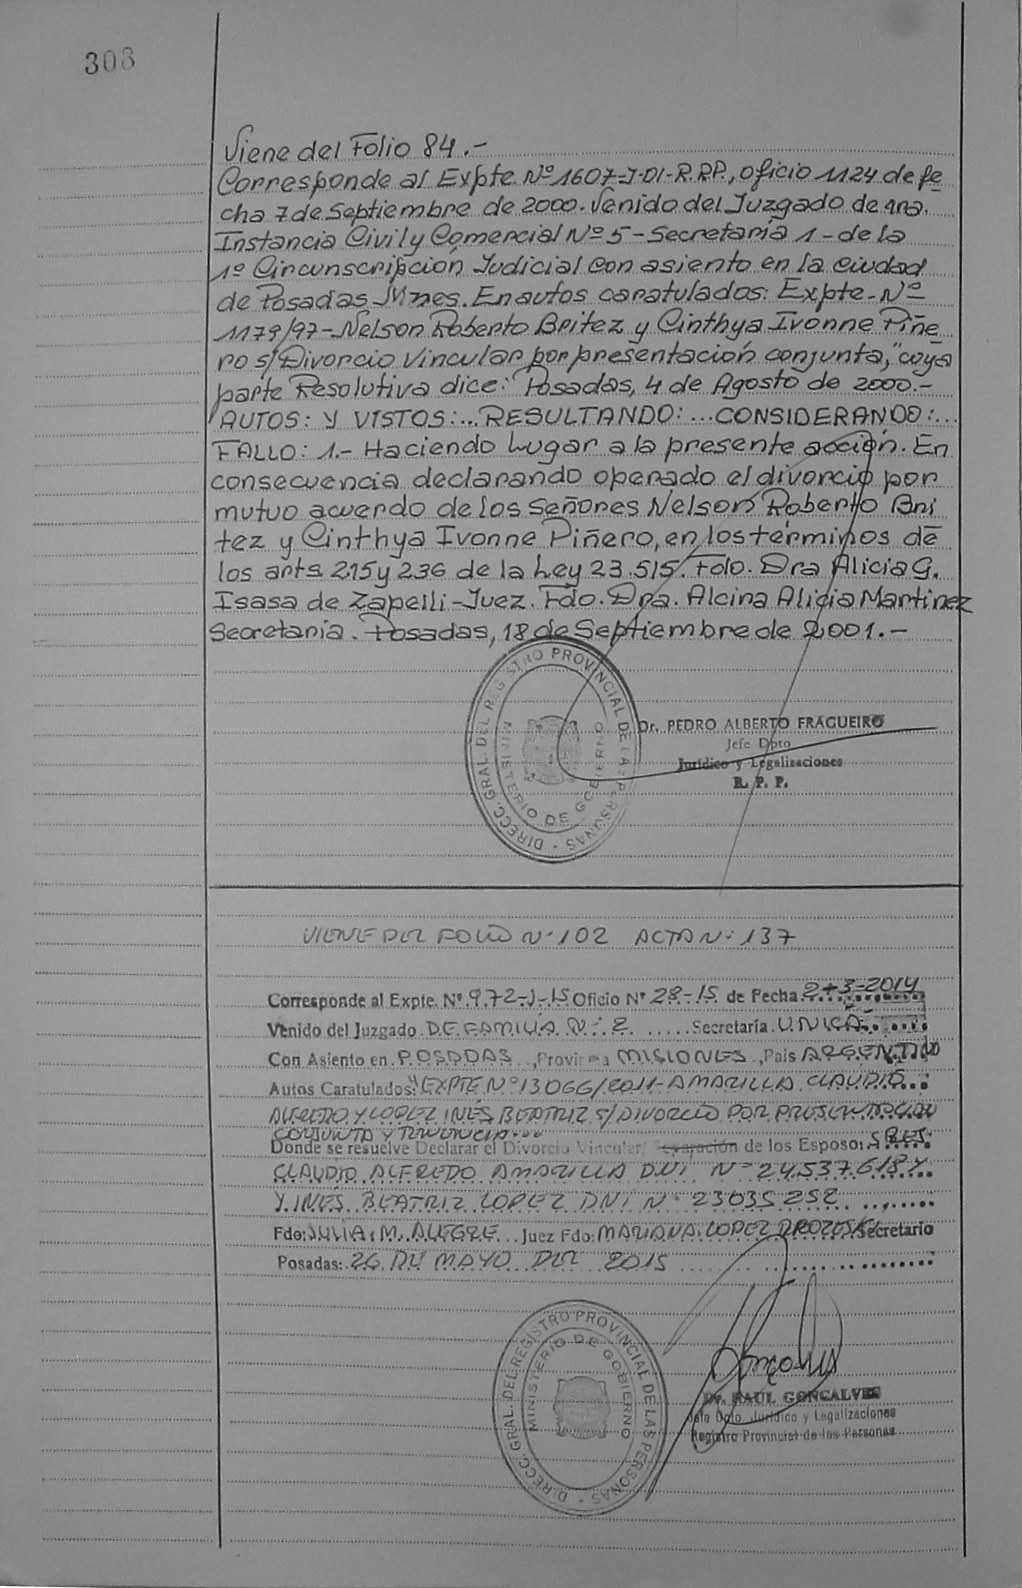 308
Viene del Folio 84.-
Corresponde al Expte. Nº 1607-J-01-R.R.P., oficio 1124 de fe
cha 7 de Septiembre de 2000. Venido del Juzgado de 1ra.
Instancia Civil y Comercial Nº 5 - Secretaria 1 - de la
1º Circunscripción Judicial con asiento en la ciudad
de Posadas Mnes. En autos caratulados: Expte. Nº
1179/97 - Nelson Roberto Britez y Cinthya Ivonne Piñe
ro s/ Divorcio Vincular por presentación conjunta," cuya
parte Resolutiva dice: Posadas, 4 de Agosto de 2000.-
AUTOS: Y VISTOS:...RESULTANDO:...CONSIDERANDO:...
FALLO: 1.- Haciendo lugar a la presente acción. En
consecuencia declarando operado el divorcio por
mutuo acuerdo de los Señores Nelson Roberto Bri
tez y Cinthya Ivonne Piñero, en los términos de
los arts 215 y 236 de la Ley 23.515. Fdo. Dra Alicia G.
Isasa de Zapelli - Juez. Fdo. Dra. Alcina Alicia Martinez
Secretaria. Posadas, 18 de Septiembre de 2001.-
DIRECC. GRAL. DEL REGISTRO PROVINCIAL DE LAS PERSONAS -
MINISTERIO DE GOBIERNO
Dr. PEDRO ALBERTO FRAGUEIRO
Jefe Dpto
Jurídico y Legalizaciones
R. P. P.
VIENE DEL FOLIO Nº 102 ACTA Nº 137
Corresponde al Expte. Nº 972-J-15 Oficio Nº 28-15 de Fecha 2-3-2014
Venido del Juzgado DE FAMILIA Nº 2 Secretaría UNICA
Con Asiento en POSADAS, Provincia MISIONES, Pais ARGENTINO
Autos Caratulados: "EXPTE Nº 13066/2011- AMARILLA CLAUDIO
ALFREDO Y LOPEZ INES BEATRIZ S/ DIVORCIO POR PRESENTACION
CONJUNTA Y TENENCIA
Donde se resuelve Declarar el Divorcio Vincular/ Separación de los Esposos SRES.
CLAUDIO ALFREDO AMARILLA DNI Nº 24.537.618 Y
Y. INES BEATRIZ LOPEZ DNI Nº 23035252
Fdo: JULIA M. ALEGRE Juez Fdo: MARIANA LOPEZ Secretario
Posadas: 26 DE MAYO DEL 2015
DIRECC. GRAL. DEL REGISTRO PROVINCIAL DE LAS PERSONAS -
MINISTERIO DE GOBIERNO
Dr. RAUL GONCALVES
Jefe Dpto. Jurídico y Legalizaciones
Registro Provincial de las Personas